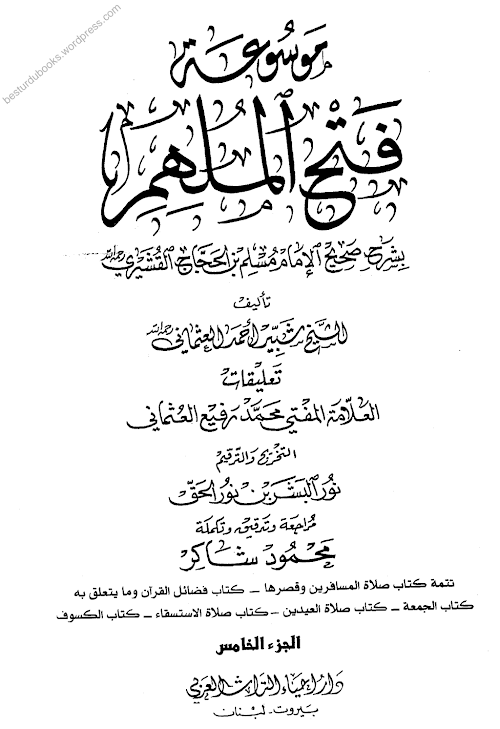 besturdubooks.wordpress.com
موسوعة
فتح الملهم
بشرح صحيح الإمام مسلم بن الحجاج القشيري رحمه الله
تأليف
للشيخ شبير أحمد العثماني رحمه الله
تعليقات
العلامة المفتي محمد رفيع العثماني
التخريج والترقيم
نور البشر بن نور الحق
مراجعة وتدقيق وتكملة
محمود شاكر
تتمة كتاب صلاة المسافرين وقصرها – كتاب فضائل القرآن وما يتعلق به
كتاب الجمعة – كتاب صلاة العيدين – كتاب صلاة الاستسقاء – كتاب الكسوف
الجزء الخامس
دار إحياء التراث العربي
بيروت - لبنان